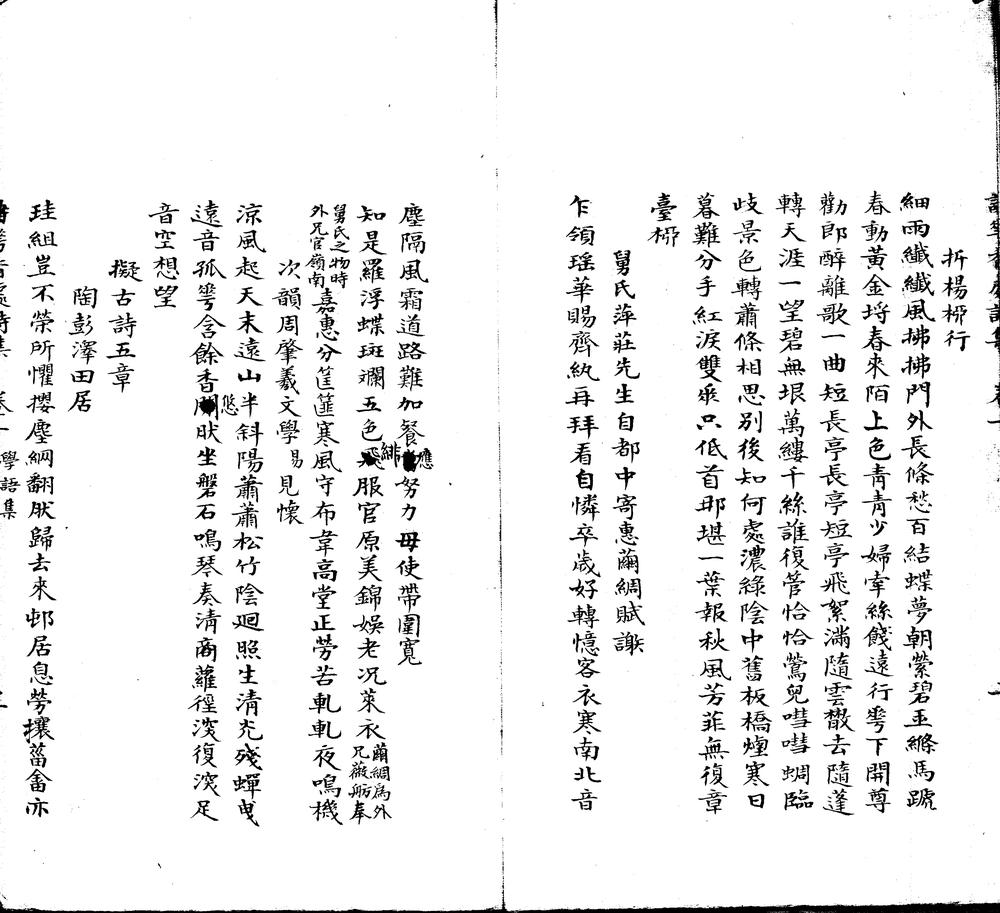 折楊桺行
細雨纖纖風拂拂門外長條愁百結蝶夢朝縈碧玉縧馬蹏
春動黃金埒春來陌上色青青少婦牽絲餞遠行夸下開尊
勸郎醉離歌一曲短長亭長亭短亭飛絮滿隨雲散去隨蓬
轉天涯一望碧無垠萬縷千絲誰復管恰恰鶯兒嘒嘒蜩臨
岐景色轉蕭條相思別後知何處濃綠陰中舊板橋煙寒日
暮難分手紅淚雙垂只低首那堪一葉報秋風芳菲無復章
臺桺
舅氏萍莊先生自都中寄惠繭綢賦謝
乍領瑤華賜齊紈再拜看自憐卒歲好轉憶客衣寒南北音
塵隔風霜道路難加餐應努力毋使帶圍寬
知是羅浮蝶斑斕五色緋服官原美錦娛老況萊衣繭綢爲外兄薇舫奉
舅氏之物時外兄官嶺南嘉惠分筐篚寒風守布韋高堂正勞苦軋軋夜鳴機
次韻周肇羲文學易見懷
涼風起天末遠山半斜陽蕭蕭松竹陰廻照生清光殘蟬曳
遠音孤夸含餘香悠肰坐磐石鳴琴奏清商蘿徑深復深足
音空想望
擬古詩五章
陶彭澤田居
珪組豈不榮所懼攖塵綱翻肰歸去來邨居息勞攘菑畬亦